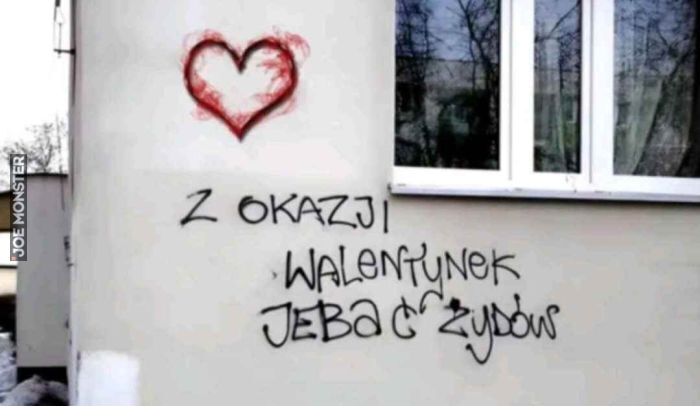 Z OKAZJI
WALENTYNEK
JEBAĆ ŻYDÓW
JOE MONSTER